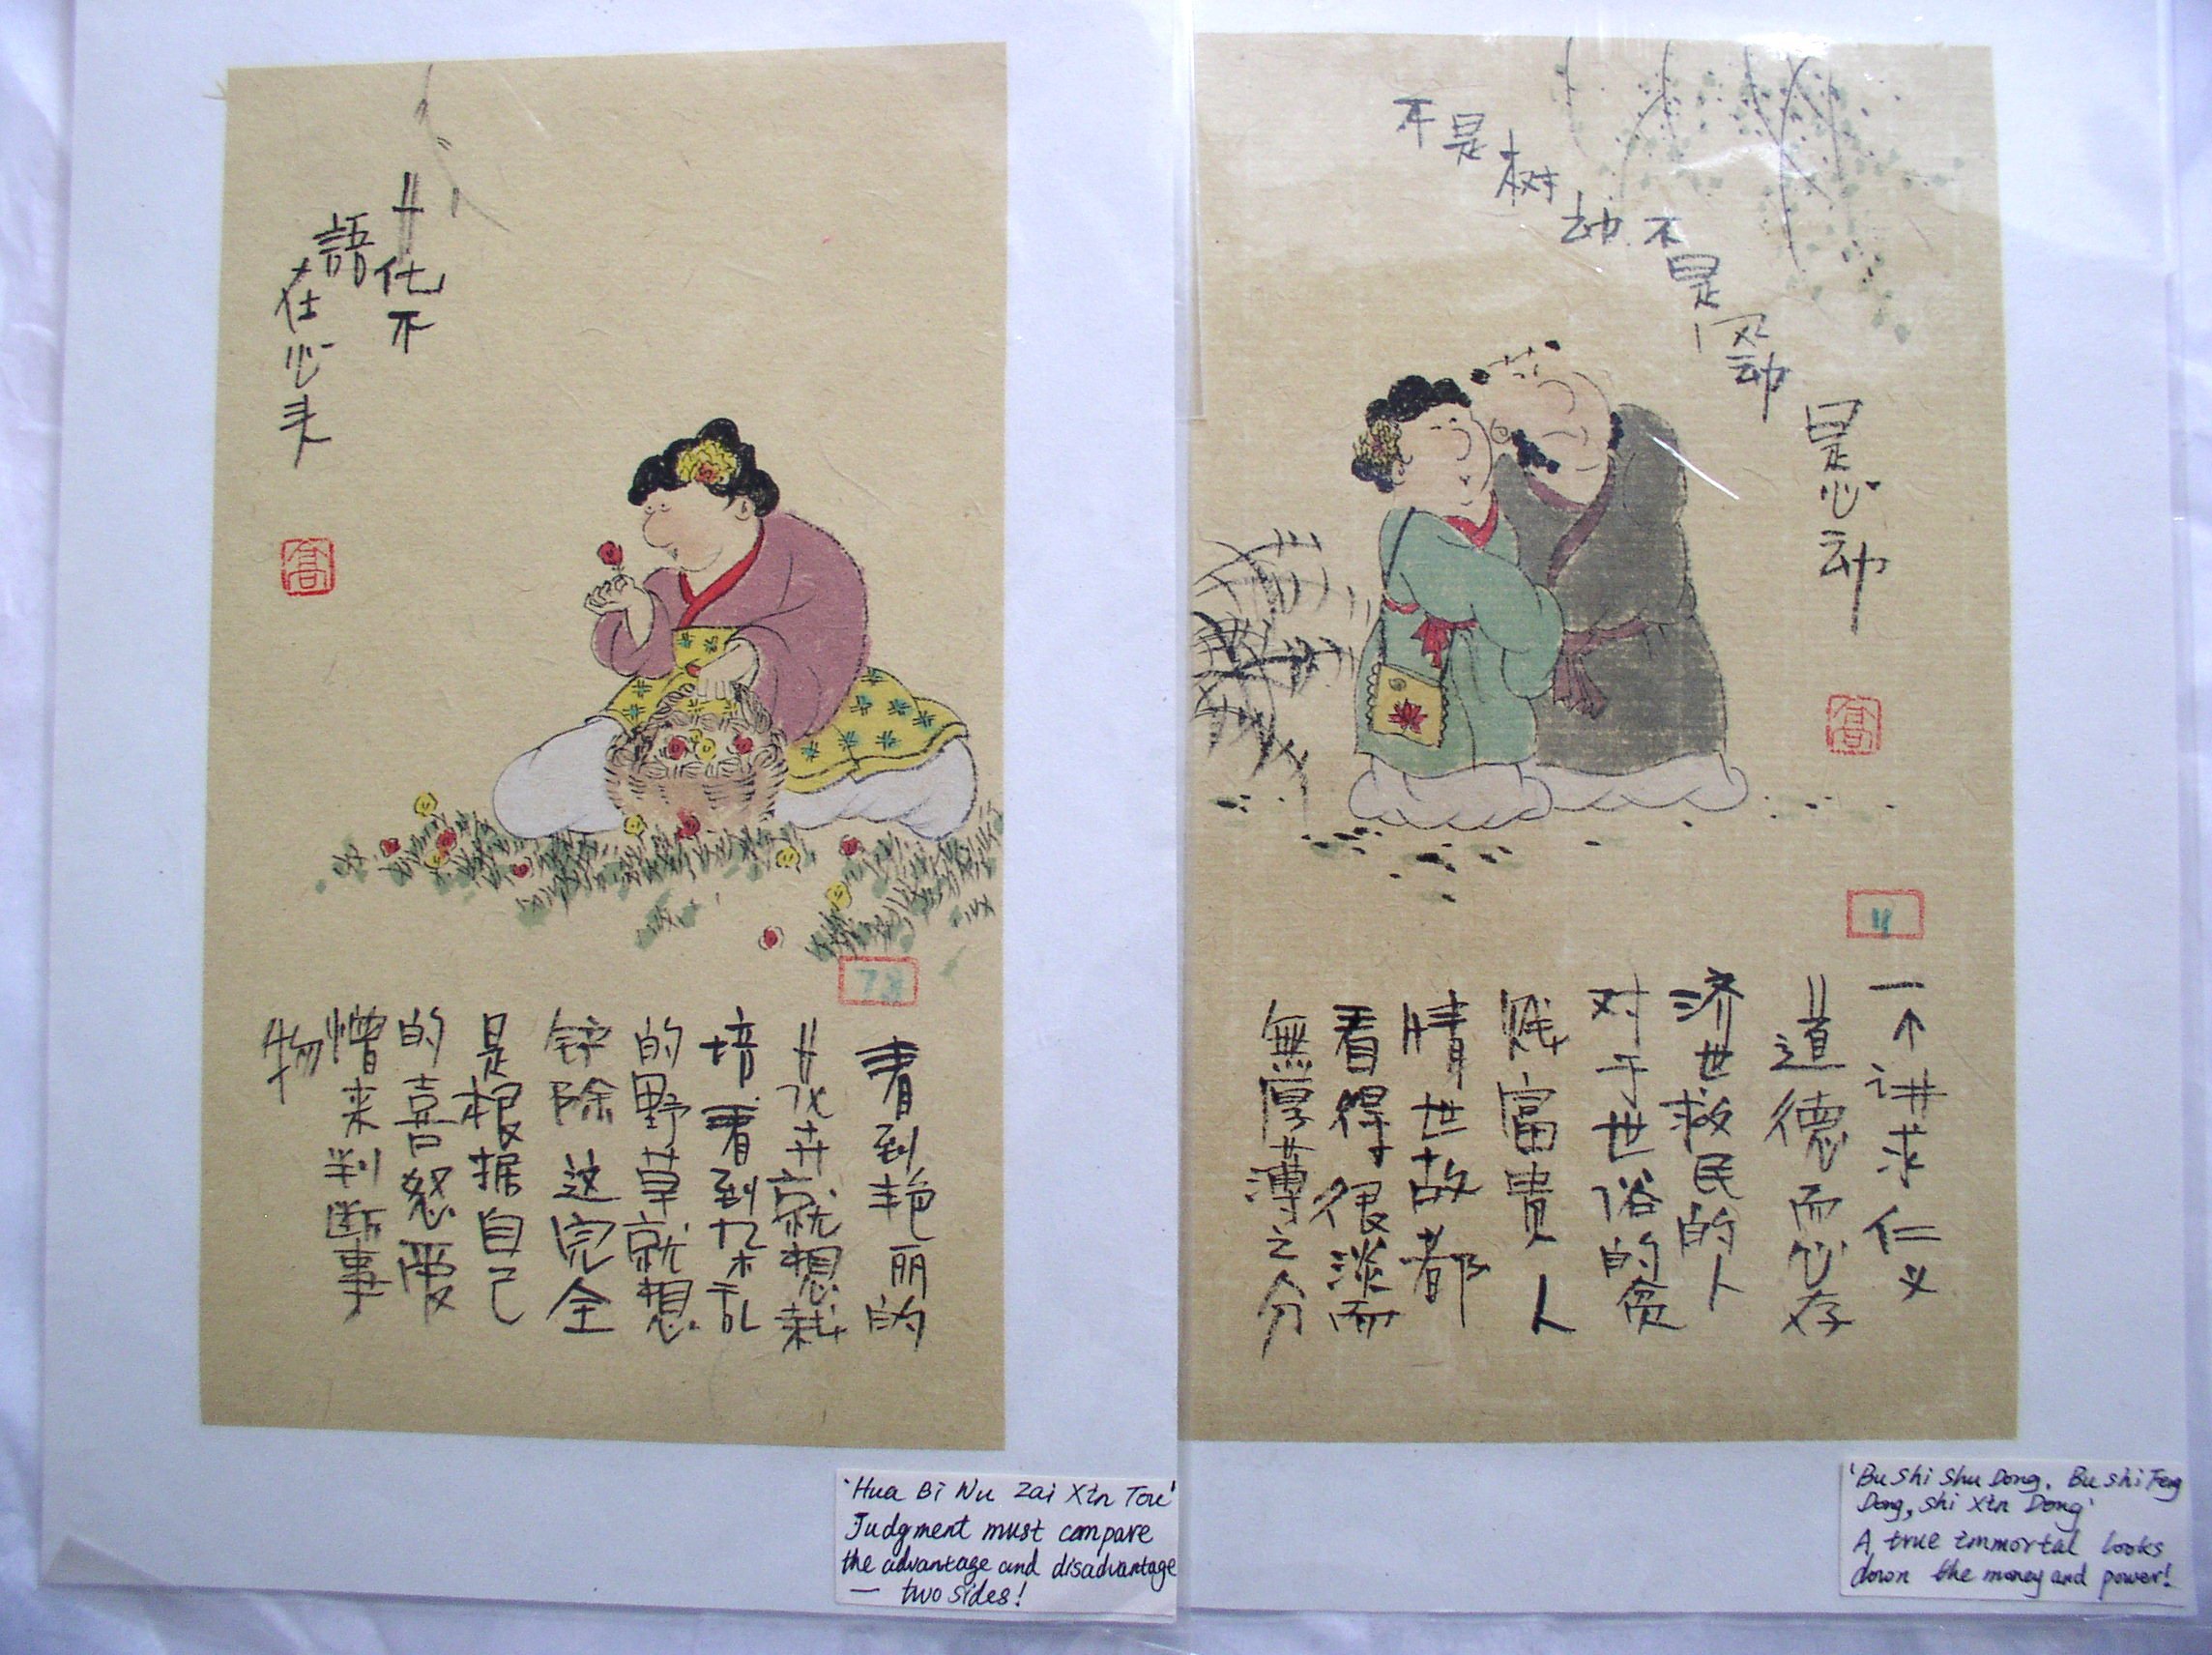 花不
語
在心头
高
看到艳丽的
花卉就想栽
培看到杂乱
的野草就想
铲除这完全
是根据自己
的喜怒愛
憎来判断事
物
'Hua Bi Nu Zai Xin Tou'
Judgment must compare
the advantage and disadvantage
— two sides!
不是树动不是风动
是心动
高
一个讲求仁义
道德而心存
济世救民的人
对于世俗的贫
贱富貴人
情世故都
看得很淡而
無厚薄之分
'Bu Shi Shu Dong. Bu shi Feng
Dong, Shi Xin Dong'
A true immortal looks
down the money and power!